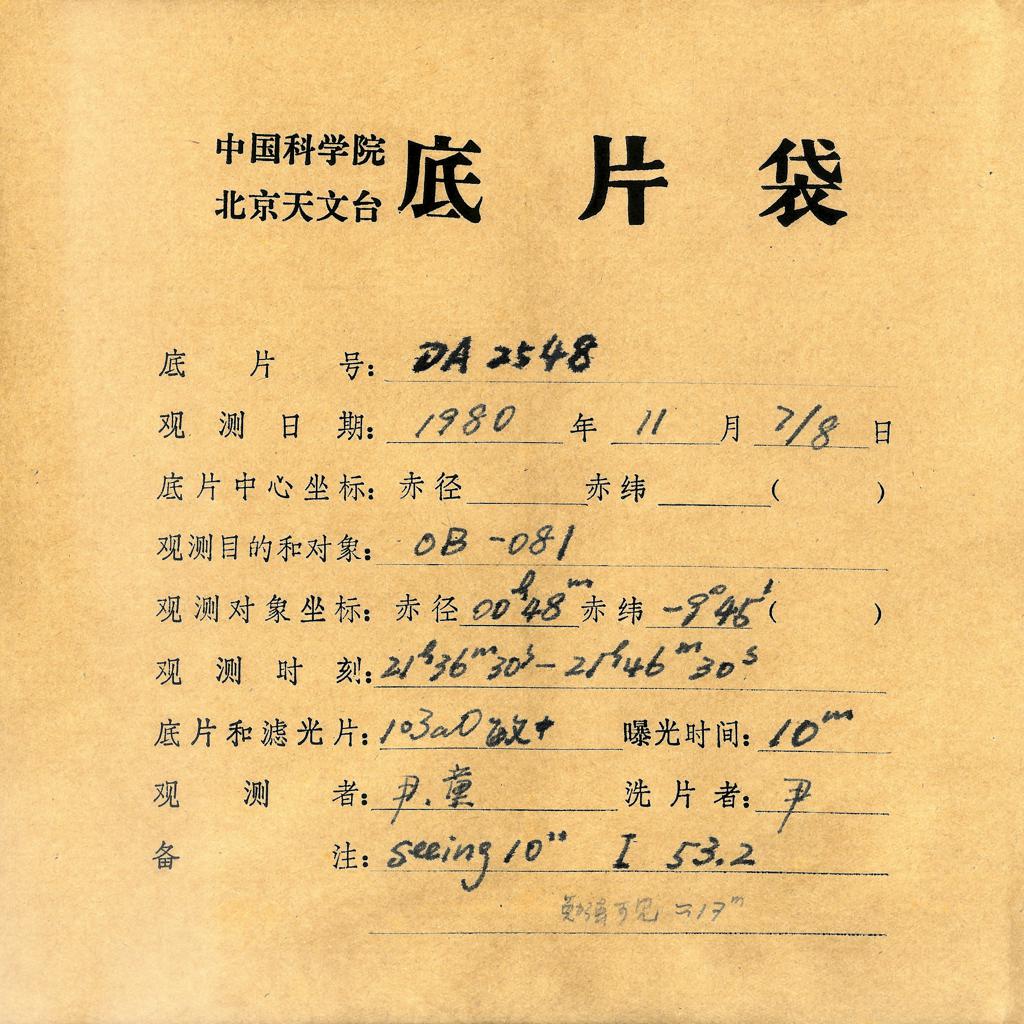 中国科学院
北京天文台
底片袋
底片号: DA 2548
观测日期: 1980年11月7/8日
底片中心坐标: 赤径 赤纬 ( )
观测目的和对象: OB -081
观测对象坐标: 赤径 00ʰ48ᵐ 赤纬 -9°45′ ( )
观测时刻: 21ʰ36ᵐ30ˢ-21ʰ46ᵐ30ˢ
底片和滤光片: 103aO 敏+ 曝光时间: 10ᵐ
观测者: 尹.童 洗片者: 尹
备注: seeing 10″ I 53.2
勉强可见 ≈17ᵐ